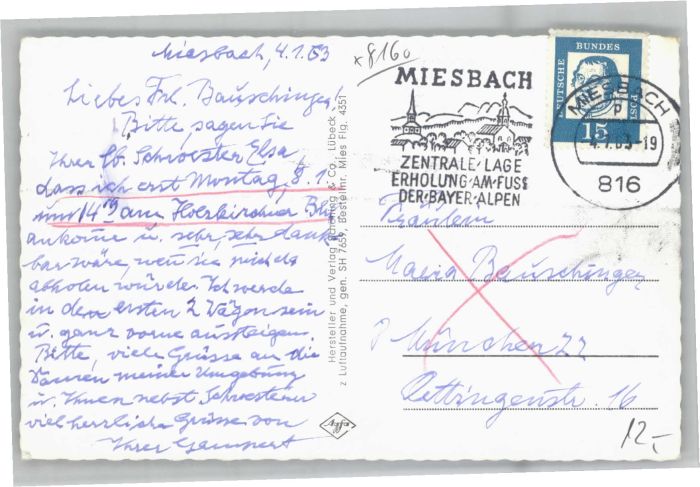 Miesbach, 4.1.63
Liebes Frl. Bauschinger!
Bitte, sagen Sie
Ihrer lb. Schwester Elsa,
dass ich erst Montag, 8.1.
um 14 19 am Holzkirchner Bhf
ankome u. sehr, sehr dank-
bar wäre, wen sie mich da
abholen würde. Ich werde
in den ersten 2 Wägen sein
u. ganz vorne aussteigen.
Bitte, viele Grüsse an die
Damen meiner Umgebung
u. Ihnen nebst Schwestern
viel herzliche Grüsse von
Ihrer
Hersteller und Verlag Schöning & Co., Lübeck
z Luftaufnahme, gen. SH 7659, Bestellnr. Mies Flg. 4351
Agfa
x8160
MIESBACH
ZENTRALE LAGE
ERHOLUNG AM FUSS
DER BAYER. ALPEN
DEUTSCHE BUNDESPOST
15
MIESBACH
p
-4.1.63-19
816
Fräulein
Maria Bauschinger
München 22
Rettingenstr. 16
12,-